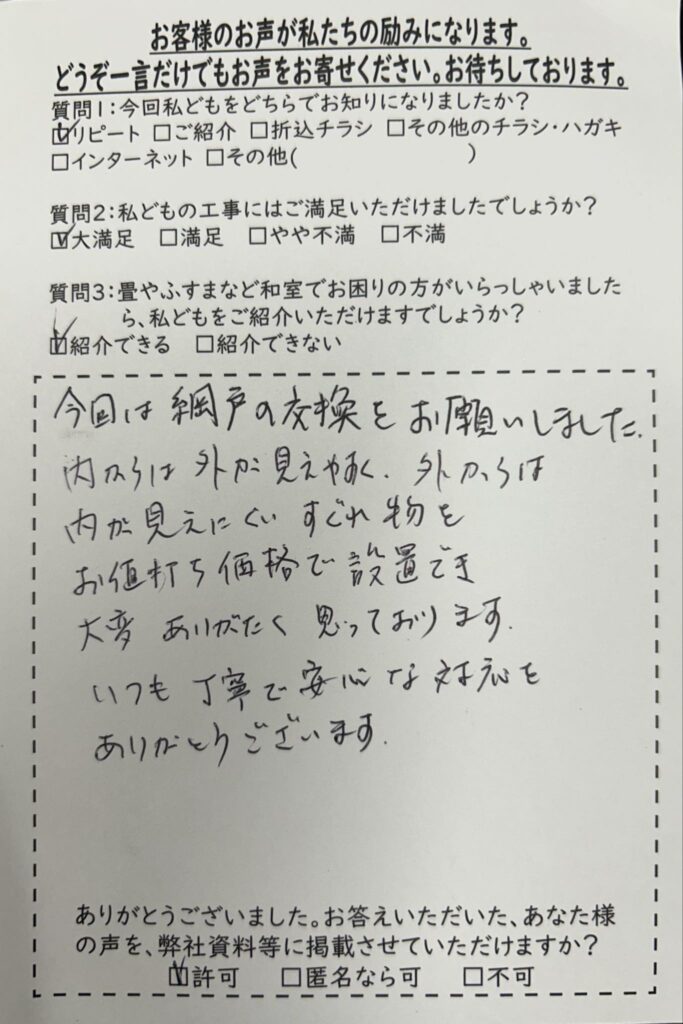 お客様のお声が私たちの励みになります。
どうぞ一言だけでもお声をお寄せください。お待ちしております。
質問1:今回私どもをどちらでお知りになりましたか?
☑リピート □ご紹介 □折込チラシ □その他のチラシ・ハガキ
□インターネット □その他( )
質問2:私どもの工事にはご満足いただけましたでしょうか?
☑大満足 □満足 □やや不満 □不満
質問3:畳やふすまなど和室でお困りの方がいらっしゃいました
ら、私どもをご紹介いただけますでしょうか?
☑紹介できる □紹介できない
今回は網戸の交換をお願いしました。
内からは外が見えやすく、外からは
内が見えにくいすぐれ物を
お値打ち価格で設置でき
大変ありがたく思っております。
いつも丁寧で安心な対応を
ありがとうございます。
ありがとうございました。お答えいただいた、あなた様
の声を、弊社資料等に掲載させていただけますか?
☑許可 □匿名なら可 □不可